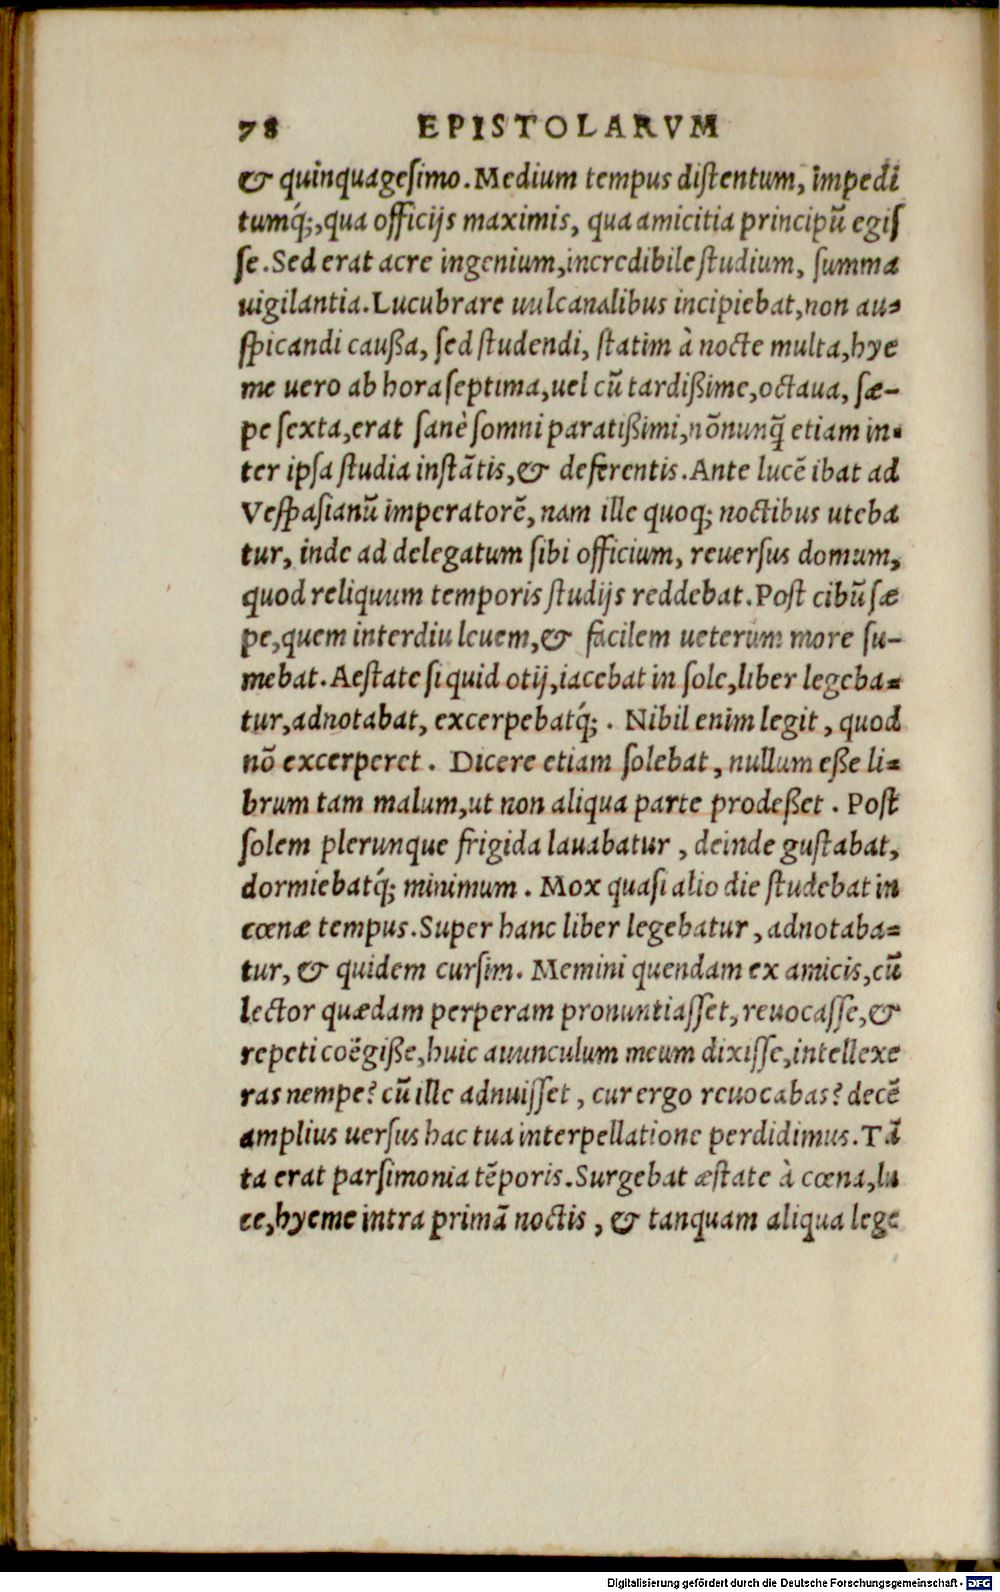 78 EPISTOLARVM
& quinquagesimo. Medium tempus distentum, impedi
tumq́;, qua officijs maximis, qua amicitia principũ egiſ
ſe. Sed erat acre ingenium, incredibile ſtudium, ſumma
uigilantia. Lucubrare uulcanalibus incipiebat, non au-
ſpicandi caußa, ſed ſtudendi, ſtatim à nocte multa, hye
me uero ab hora ſeptima, uel cũ tardißime, octaua, ſæ-
pe ſexta, erat ſanè ſomni paratißimi, nõnunq̃ etiam in-
ter ipſa ſtudia inſtãtis, & deferentis. Ante lucẽ ibat ad
Veſpaſianũ imperatorẽ, nam ille quoq; noctibus uteba
tur, inde ad delegatum ſibi officium, reuerſus domum,
quod reliquum temporis ſtudijs reddebat. Poſt cibũ ſæ
pe, quem interdiu leuem, & facilem ueterum more ſu-
mebat. Aeſtate ſi quid otij, iacebat in ſole, liber legeba-
tur, adnotabat, excerpebatq́;. Nihil enim legit, quod
nõ excerperet. Dicere etiam ſolebat, nullum eße li-
brum tam malum, ut non aliqua parte prodeßet. Poſt
ſolem plerunque frigida lauabatur, deinde guſtabat,
dormiebatq́; minimum. Mox quaſi alio die ſtudebat in
cœnæ tempus. Super hanc liber legebatur, adnotaba-
tur, & quidem curſim. Memini quendam ex amicis, cũ
lector quædam perperam pronuntiaſſet, reuocaſſe, &
repeti coëgiße, huic auunculum meum dixiſſe, intellexe
ras nempe? cũ ille adnuiſſet, cur ergo reuocabas? decẽ
amplius uerſus hac tua interpellatione perdidimus. Tã
ta erat parſimonia tẽporis. Surgebat æſtate à cœna, lu
ce, hyeme intra primã noctis, & tanquam aliqua lege
Digitalisierung gefördert durch die Deutsche Forschungsgemeinschaft - DFG